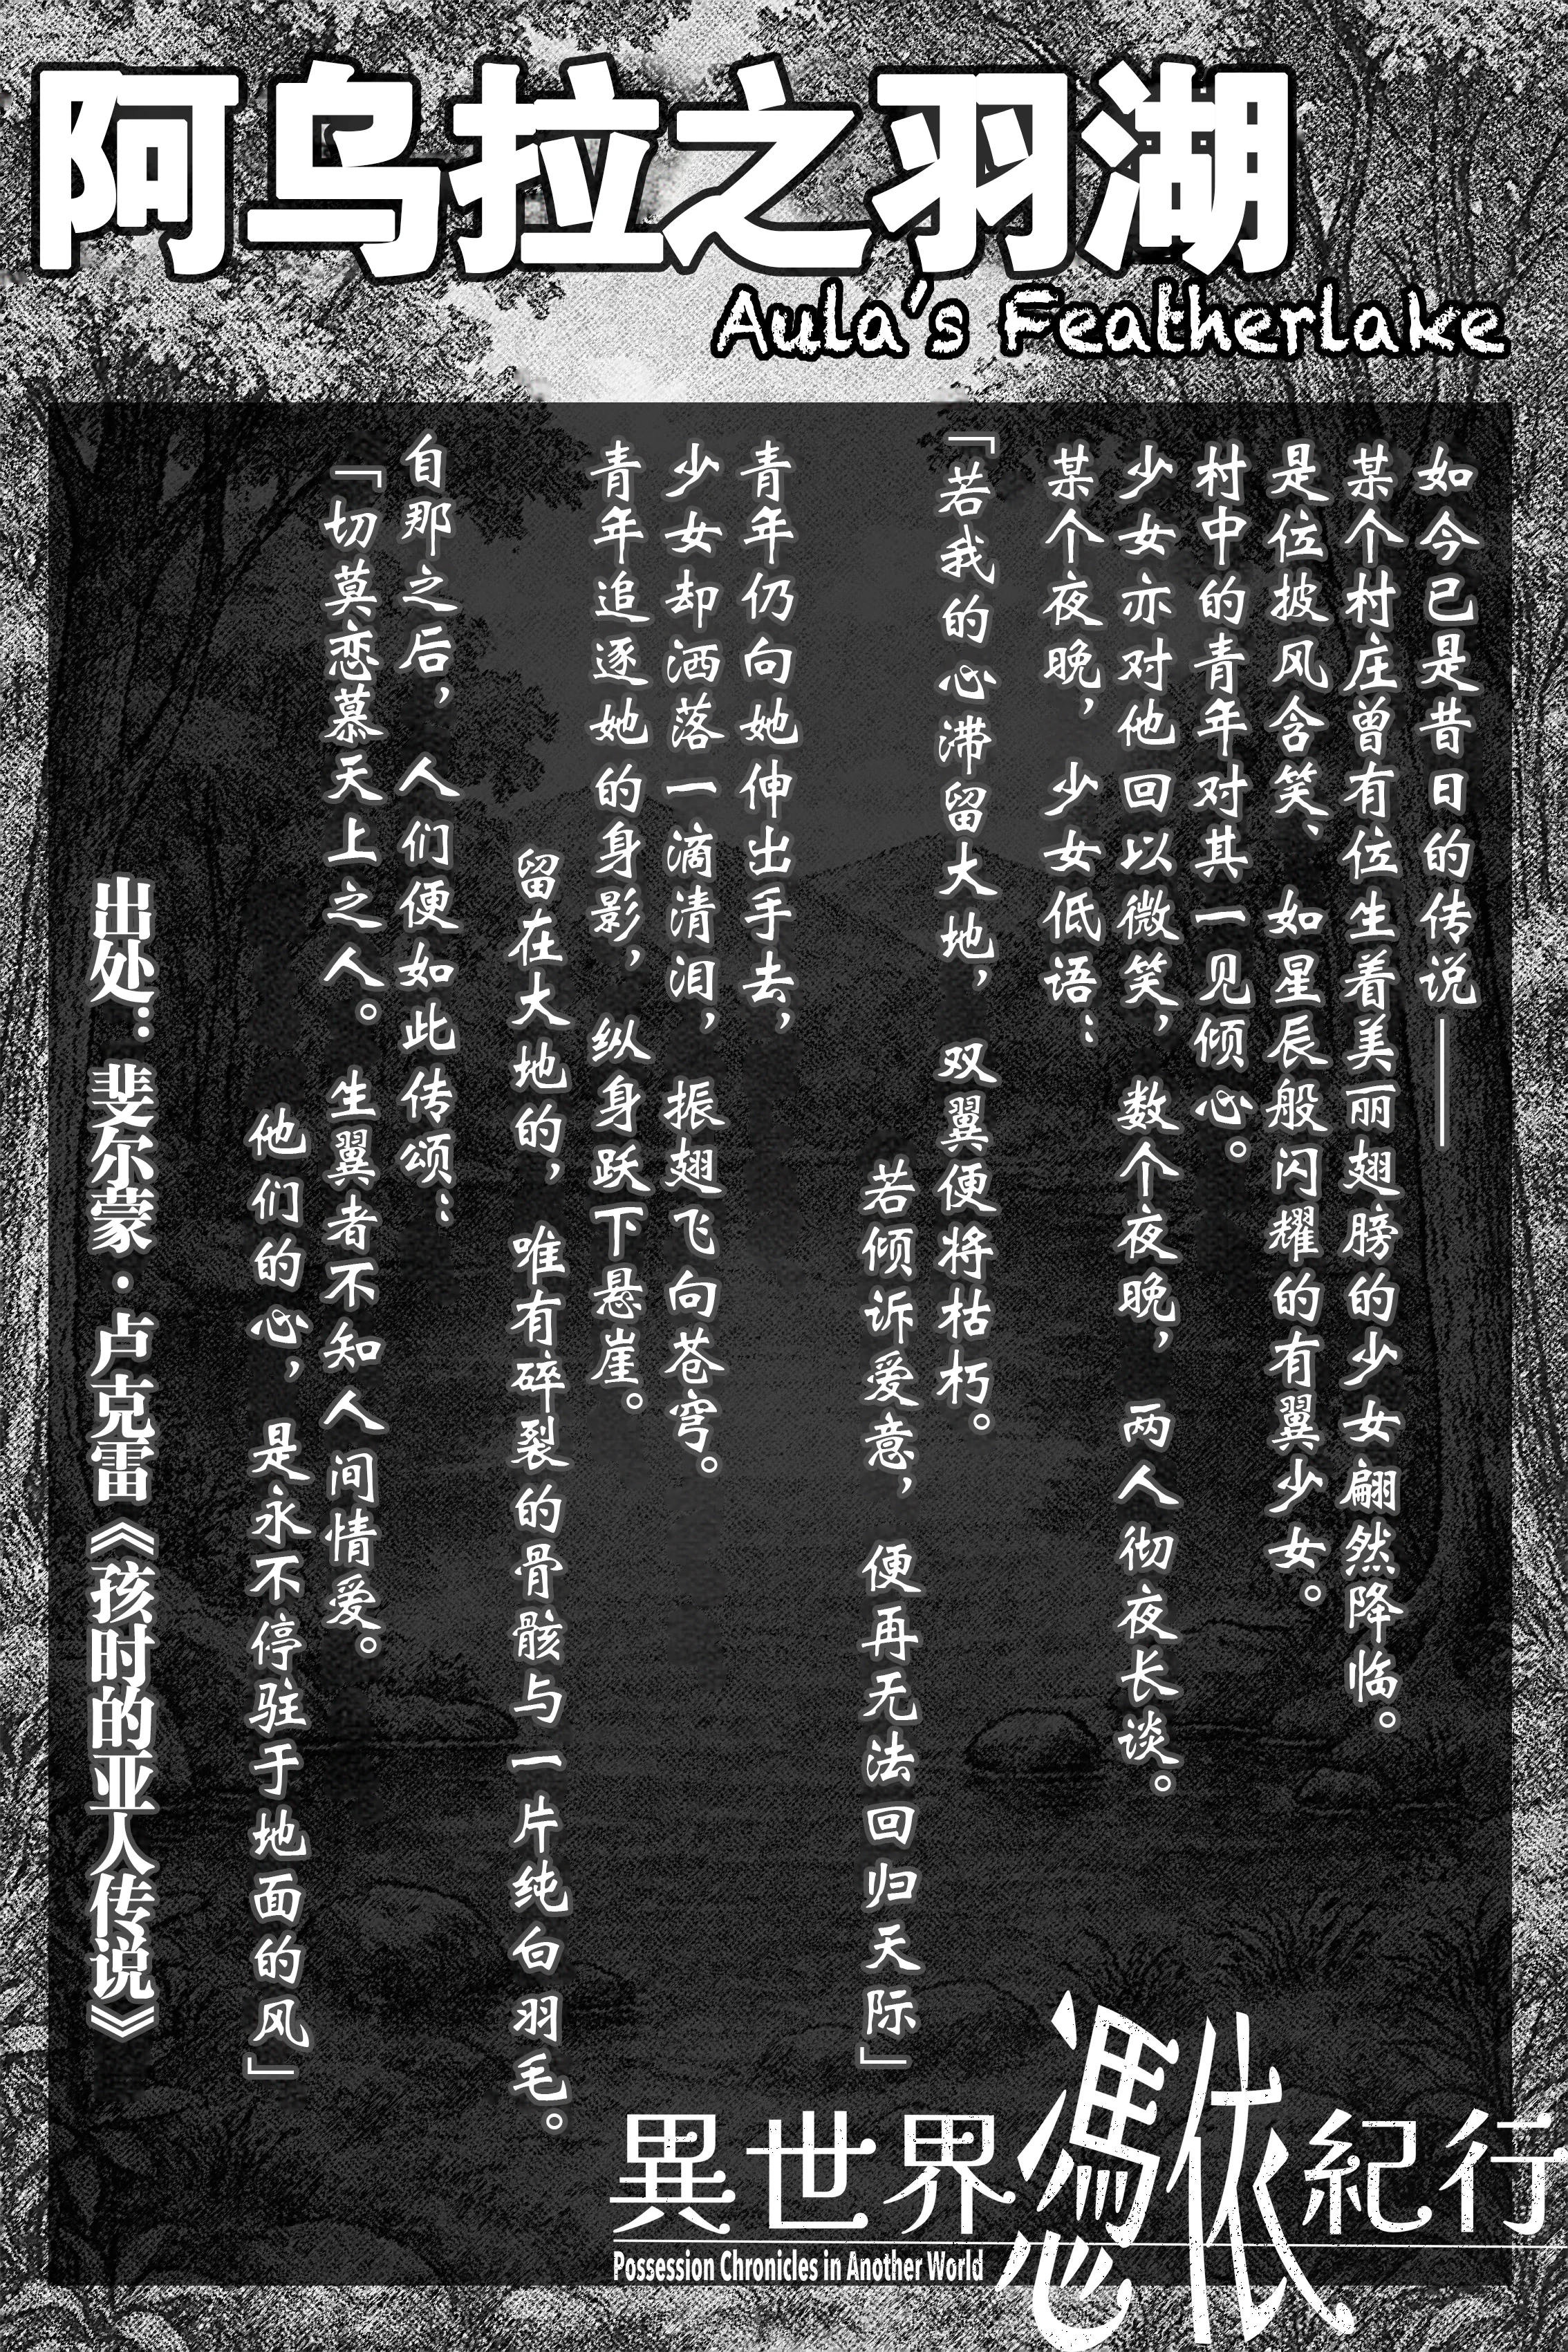 阿乌拉之羽湖
Aula's Featherlake
如今已是昔日的传说——
某个村庄曾有位生着美丽翅膀的少女翩然降临。
是位披风含笑、如星辰般闪耀的有翼少女。
村中的青年对其一见倾心。
少女亦对他回以微笑，数个夜晚，两人彻夜长谈。
某个夜晚，少女低语：
「若我的心滞留大地，双翼便将枯朽。
若倾诉爱意，便再无法回归天际」
青年仍向她伸出手去，
少女却洒落一滴清泪，振翅飞向苍穹。
青年追逐她的身影，纵身跃下悬崖。
留在大地的，唯有碎裂的骨骸与一片纯白羽毛。
自那之后，人们便如此传颂：
「切莫恋慕天上之人。生翼者不知人间情爱。
他们的心，是永不停驻于地面的风」
出处：斐尔蒙·卢克雷《孩时的亚人传说》
異世界憑依紀行
Possession Chronicles in Another World